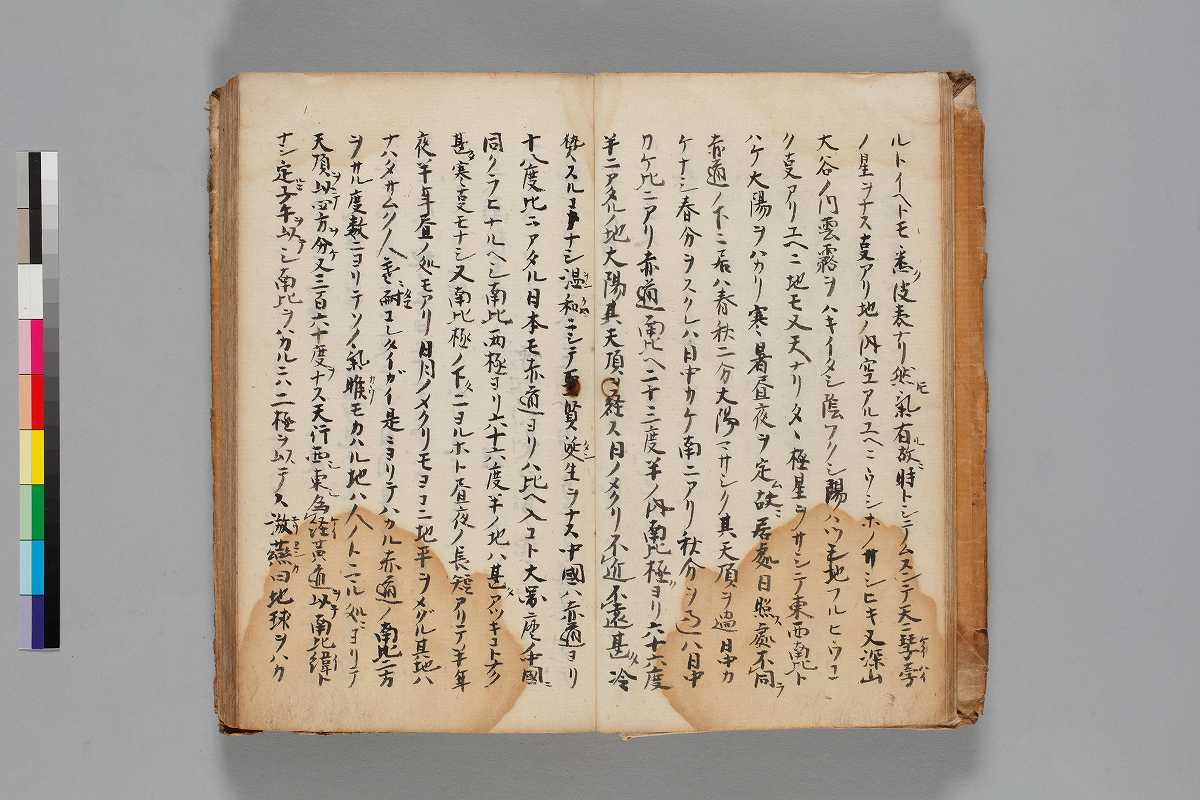 ルトイヘトモ悉皮表ナリ然氣有故時トシテノムスンテ天ニ孛
ノ星ヲナス㕝アリ地ノ内空アルユヘニウシホノサシヒキ又深山
大谷ノ間雲霧ヲハキイタシ陰フノシ陽ノハツモ地フルヒウコ
ク㕝アリユヘニ地モ又天ナリタヽ極星ヲサシテ東西南北ト
ハケ大陽ヲハカリ寒暑昼夜ヲ定故居處日照處不同
赤道ノ下ニ居ハ春秋二分大陽マサシク其天頂ヲ過日中カ
ケナシ春分ヲスクレハ日中カケ南ニアリ秋分ヲ過ハ日中
カケ北ニアリ赤道南北ヘ二十三度半ノ内南北極ヨリ六十六度
半ニアタルノ地大陽其天頂ヲ経ス日ノメクリ不近不遠甚冷
熱スルコナシ温和ニシテ聖賢誕生ヲナス中國ハ赤道ヨリ
十八度北ニアタル日本モ赤道ヨリハ北ヘ入コト大畧唐本國
同クラヒナルヘシ南北両極ヨリ六十六度半ノ地ハ甚アツキコトナク
甚寒㕝モナシ又南北極ノ下ニヨルホト昼夜ノ長短アリテ半年
夜半年昼ノ処モアリ日月ノメクリモヨコニ地平ヲメグル其地ハ
ナハタサムク人寒耐コレタイガイ是ニヨリテハカル赤道ノ南北二方
ヲサル度数ニヨリテソノ氣暖モカハル地ハ八ノトニル処ニヨリテ
天頂以四方分又三百六十度ナス天行西東為経黄道以南北緯ト
ナシ定子午以シ南北ヲハカル二八二極ヲ以テス激燕曰地球ヲハカ